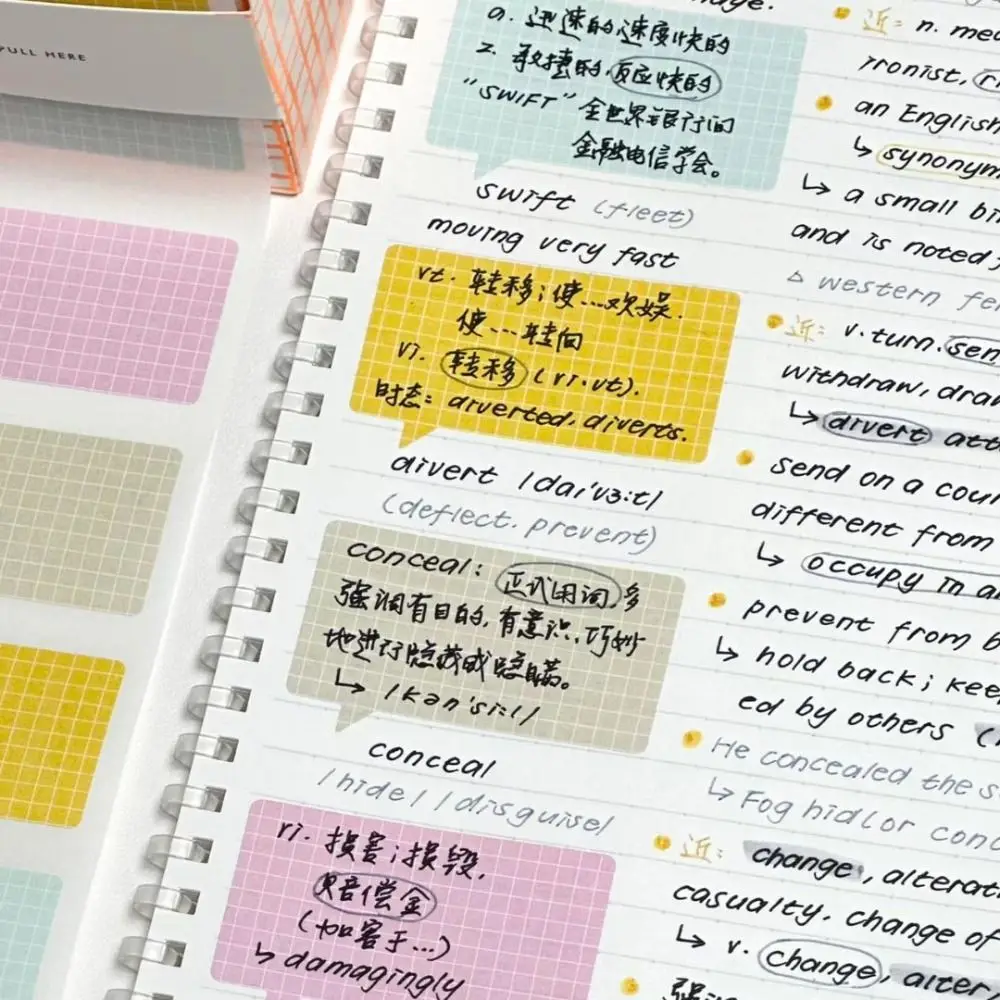 PULL HERE
a. 迅速的,速度快的
2. 敏捷的,反应快的
"SWIFT" 全世界银行间
金融电信学会。
swift (fleet)
moving very fast
vt. 转移;使...欢娱.
使...转向
vi. 转移 (vi.vt).
时态: diverted, diverts.
divert /dai'vɜ:t/
(deflect. prevent)
conceal: 正式用词,多
强调有目的,有意识、巧妙
地进行隐藏或隐瞒。
↳ /kən'si:l/
conceal
/hide/ /disguise/
vi. 损害;损毁,
赔偿金
(加害于...)
↳ damagingly
近: n.
ironist,
an English
↳ synonym
↳ a small
and is noted
△ western
近: v. turn. sen
withdraw,
↳ divert
send on a
different from
↳ occupy in
prevent from
↳ hold back;
ed by others
He concealed the
↳ Fog hid (or
近: change,
casualty. change of
↳ v. change, alter,
强调